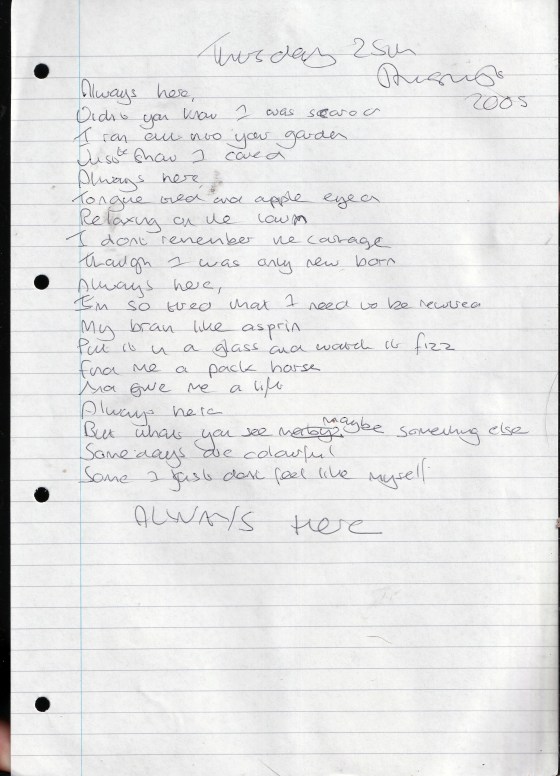 Thursday 25th
August
2005
Always here,
Didn't you know I was scared
I ran all into your garden
Just to show I cared
Always here,
Tongue tied and apple eyed
Relaxing on the lawn
I dont remember the carriage
Though I was only new born
Always here,
I'm so tired that I need to be rewired
My brain like asprin
Put it in a glass and watch it fizz
Find me a pack horse
And give me a lift
Always here
But whats you see maybe something else
Some days are colourful
Some I just dont feel like myself
ALWAYS HERE